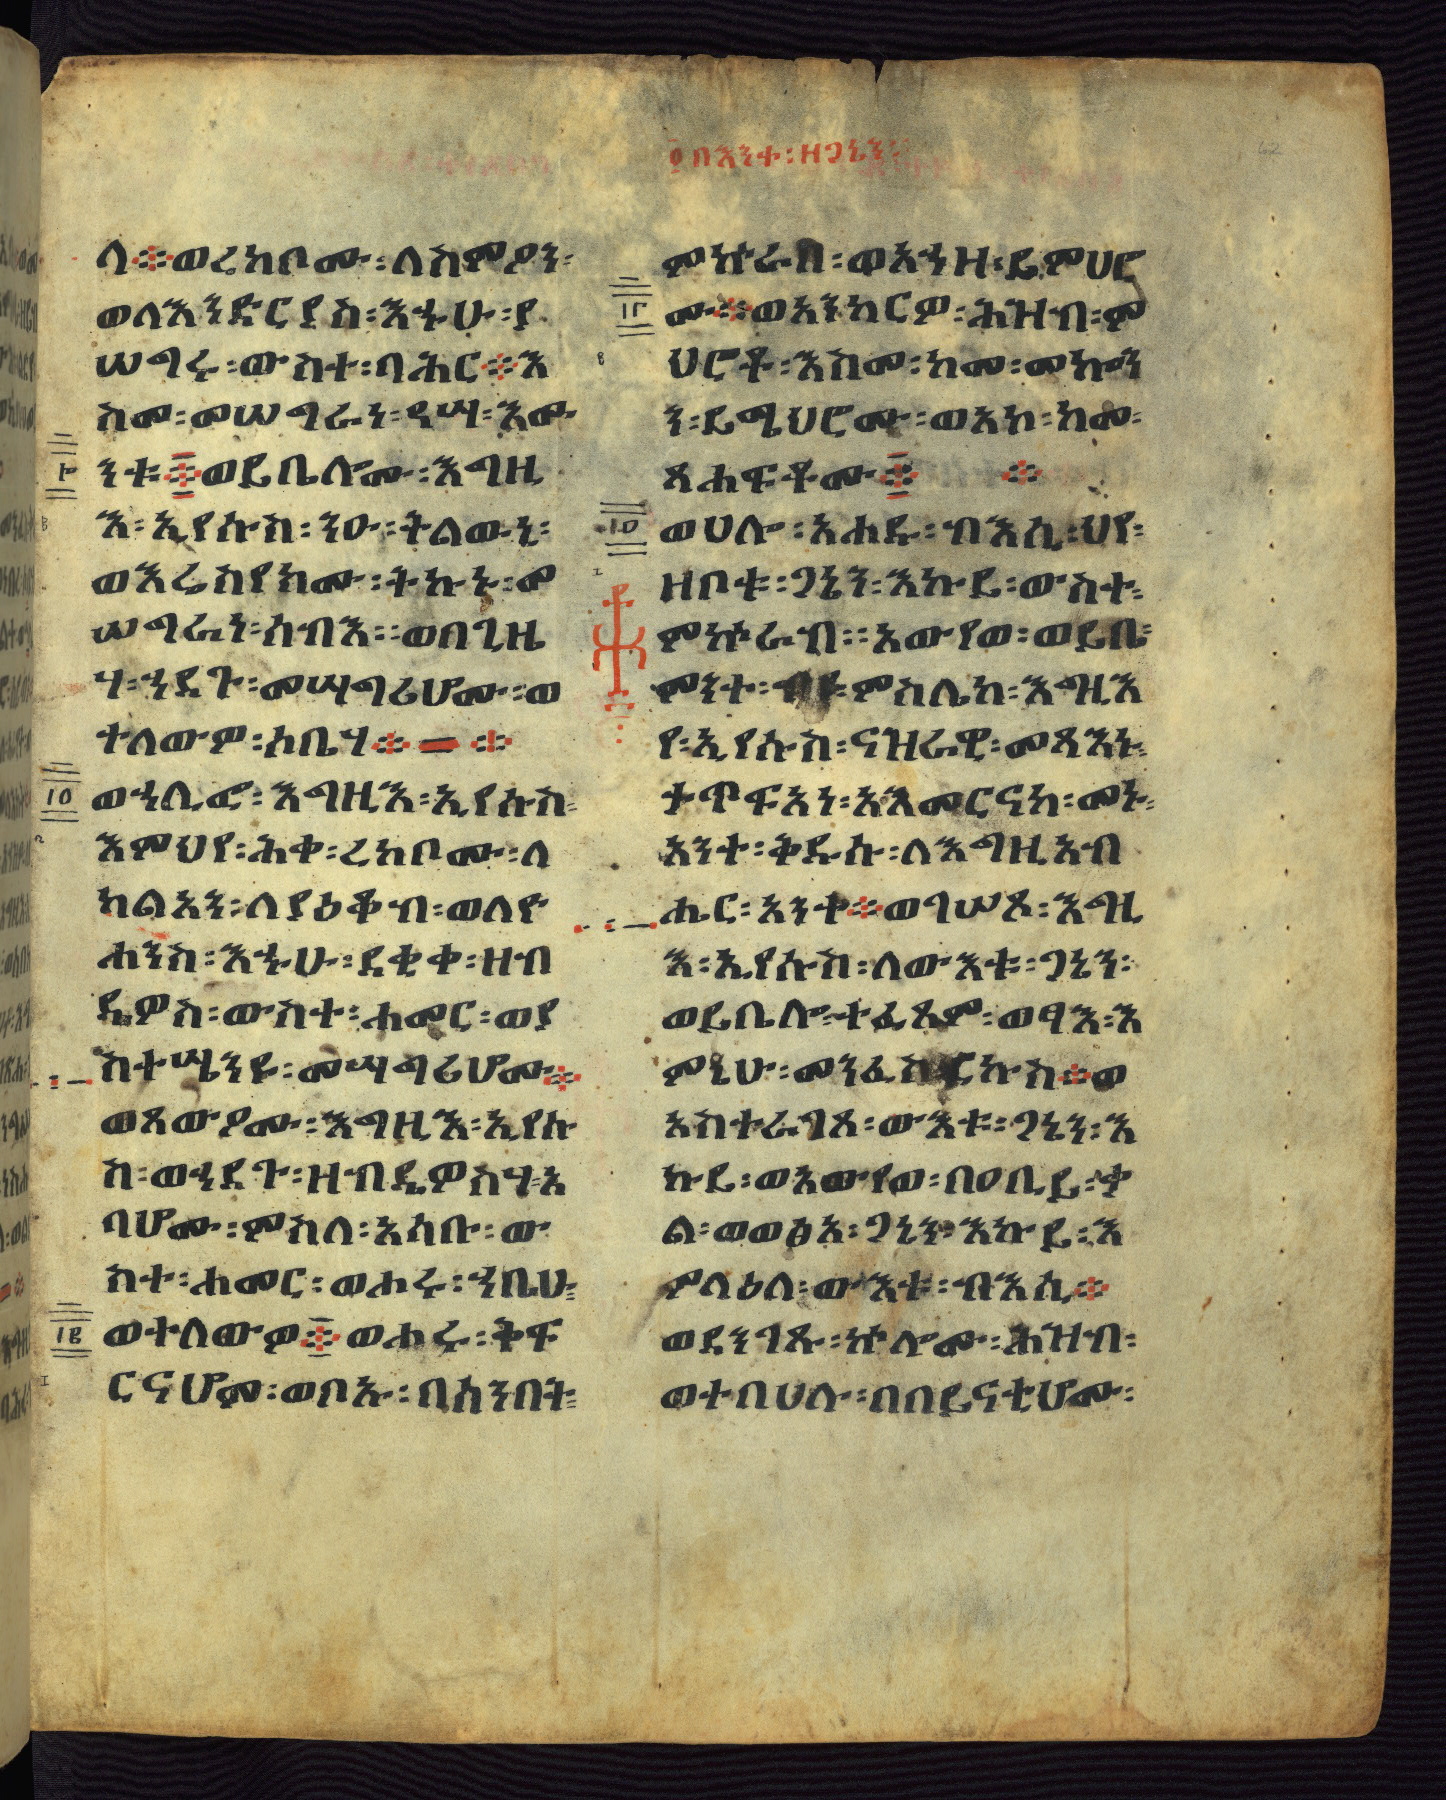 ፩በእንተ፡ዘጋኔን፡
ላ፨ወረከቦሙ፡ለስምዖን፡
ወለእንድርያስ፡እኁሁ፡ያ
ሠግሩ፡ውስተ፡ባሕር፨እ
ስመ፡መሠግራን፡ዓሣ፡እሙ
ንቱ፨ወይቤሎሙ፡እግዚ
እ፡ኢየሱስ፡ንዑ፡ትልውኒ፡
ወእሬስየክሙ፡ትኩኑ፡መ
ሠግራነ፡ሰብእ፡፡ወበጊዜ
ሃ፡ኀደጉ፡መሣግሪሆሙ፡ወ
ተለውዎ፡ሶቤሃ፨
ወኀሊፎ፡እግዚእ፡ኢየሱስ፡
እምህየ፡ሕቀ፡ረከቦሙ፡ለ
ካልኣን፡ለያዕቆብ፡ወለዮ
ሐንስ፡እኁሁ፡ደቂቀ፡ዘብ
ዴዎስ፡ውስተ፡ሐመር፡ወያ
ስተሤንዩ፡መሣግሪሆሙ፨
ወጸውዖሙ፡እግዚእ፡ኢየሱ
ስ፡ወኀደጉ፡ዘብዴዎስሃ፡አ
ባሆሙ፡ምስለ፡አሳቡ፡ው
ስተ፡ሐመር፡ወሐሩ፡ኀቤሁ፡
ወተለውዎ፨ወሐሩ፡ቅፍ
ርናሆም፡ወቦኡ፡በሰንበት፡
ምኵራበ፡ወአኀዘ፡ይምህር
ሙ፨ወአንከርዎ፡ሕዝብ፡ም
ህሮቶ፡እስመ፡ከመ፡መኰን
ን፡ይሜህሮሙ፡ወአኮ፡ከመ፡
ጸሐፍቶሙ፨
ወሀሎ፡አሐዱ፡ብእሲ፡ህየ፡
ዘቦቱ፡ጋኔን፡እኩይ፡ውስተ፡
ምኵራብ፡፡አውየወ፡ወይቤ፡
ምንተ፡ብየ፡ምስሌከ፡እግዚእ
የ፡ኢየሱስ፡ናዝራዊ፡መጻእኑ፡
ታጥፍአነ፡አአመርናከ፡መኑ፡
አንተ፡ቅዱሱ፡ለእግዚአብ
ሔር፡አንተ፨ወገሠጾ፡እግዚ
እ፡ኢየሱስ፡ለውእቱ፡ጋኔን፡
ወይቤሎ፡ተፈጸም፡ወፃእ፡እ
ምኔሁ፡መንፈስ ርኩስ፨ወ
አስተራገጾ፡ውእቱ፡ጋኔን፡እ
ኩይ፡ወአውየወ፡በዐቢይ፡ቃ
ል፡ወወፅአ፡ጋኔን፡እኩይ፡እ
ምላዕለ፡ውእቱ፡ብእሲ፨
ወደንገጹ፡ኵሎሙ፡ሕዝብ፡
ወተባሀሉ፡በበይናቲሆሙ፡